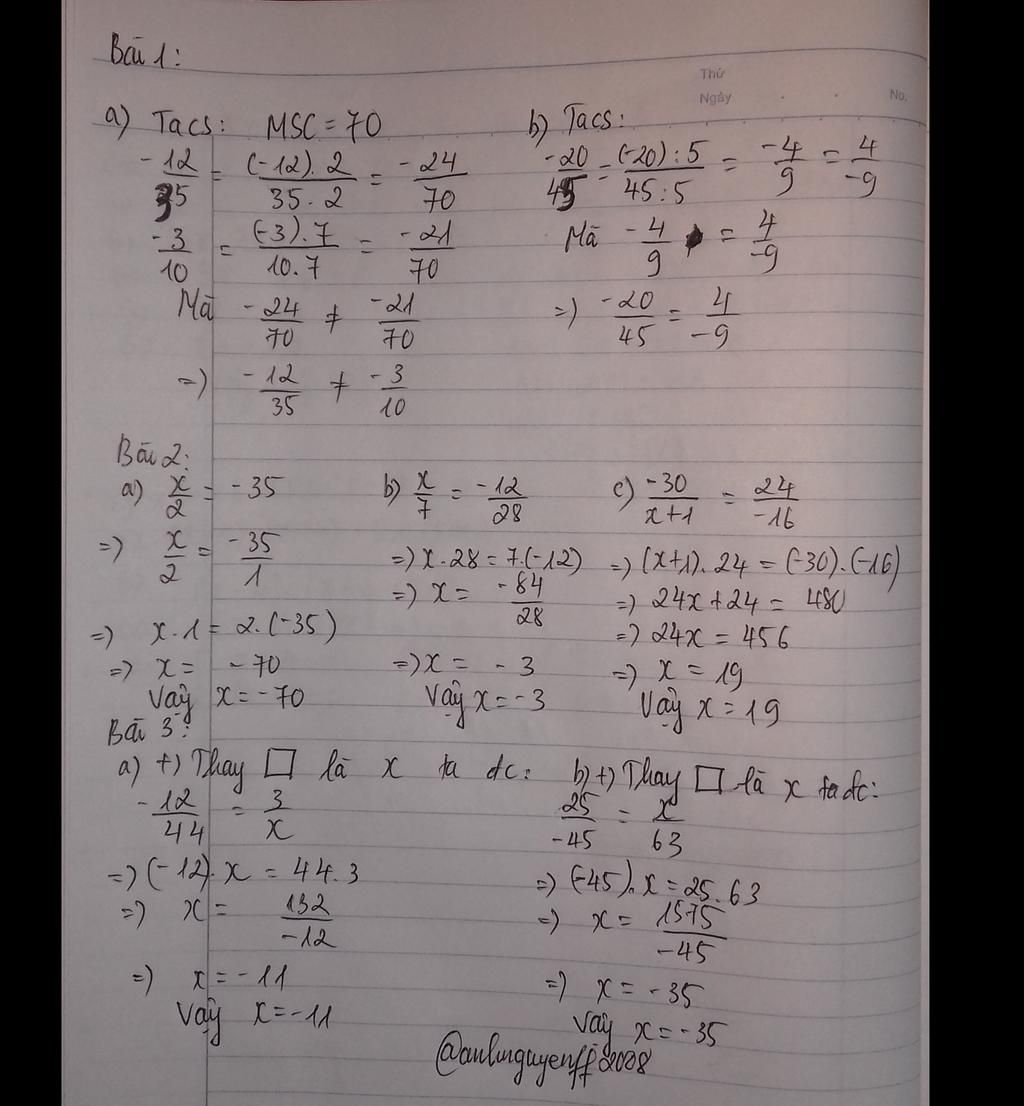 Bài 1:
Thứ
Ngày No.
a) Tacs: MSC = 70
-12/35 = (-12).2/35.2 = -24/70
-3/10 = (-3).7/10.7 = -21/70
Mà -24/70 ≠ -21/70
=) -12/35 ≠ -3/10
b) Tacs:
-20/45 = (-20):5/45:5 = -4/9 = 4/-9
Mà -4/9 = 4/-9
=) -20/45 = 4/-9
Bài 2:
a) x/2 = -35
=) x/2 = -35/1
=) x.1 = 2.(-35)
=) x = -70
Vậy x = -70
b) x/7 = -12/28
=) x.28 = 7.(-12)
=) x = -84/28
=) x = -3
Vậy x = -3
c) -30/x+1 = 24/-16
=) (x+1).24 = (-30).(-16)
=) 24x+24 = 480
=) 24x = 456
=) x = 19
Vậy x = 19
Bài 3:
a) +) Thay □ là x ta đc:
-12/44 = 3/x
=) (-12).x = 44.3
=) x = 132/-12
=) x = -11
Vậy x = -11
b) +) Thay □ là x ta đc:
25/-45 = x/63
=) (-45).x = 25.63
=) x = 1575/-45
=) x = -35
Vậy x = -35